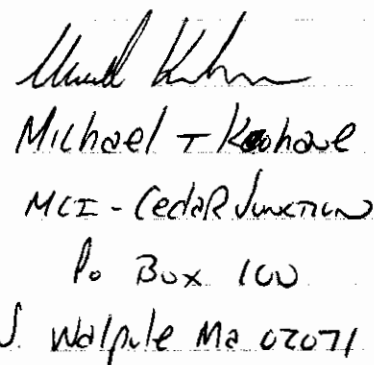 Michael T Keohane
MCI - CedaR Junction
Po Box 100
S. Walpole Ma 02071